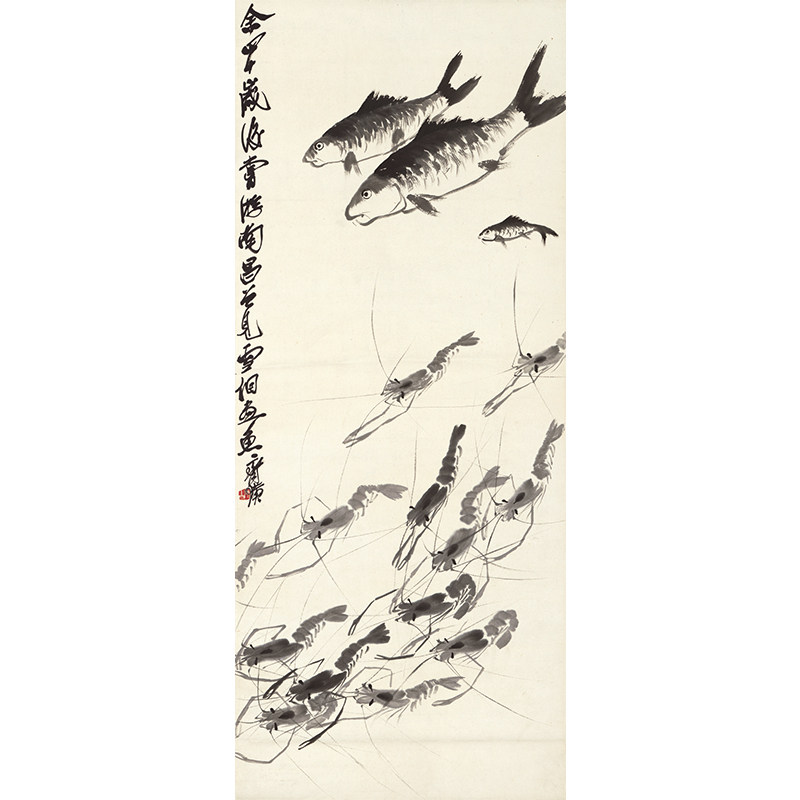 余四十歲後嘗游南昌見雪個畫魚齊璜